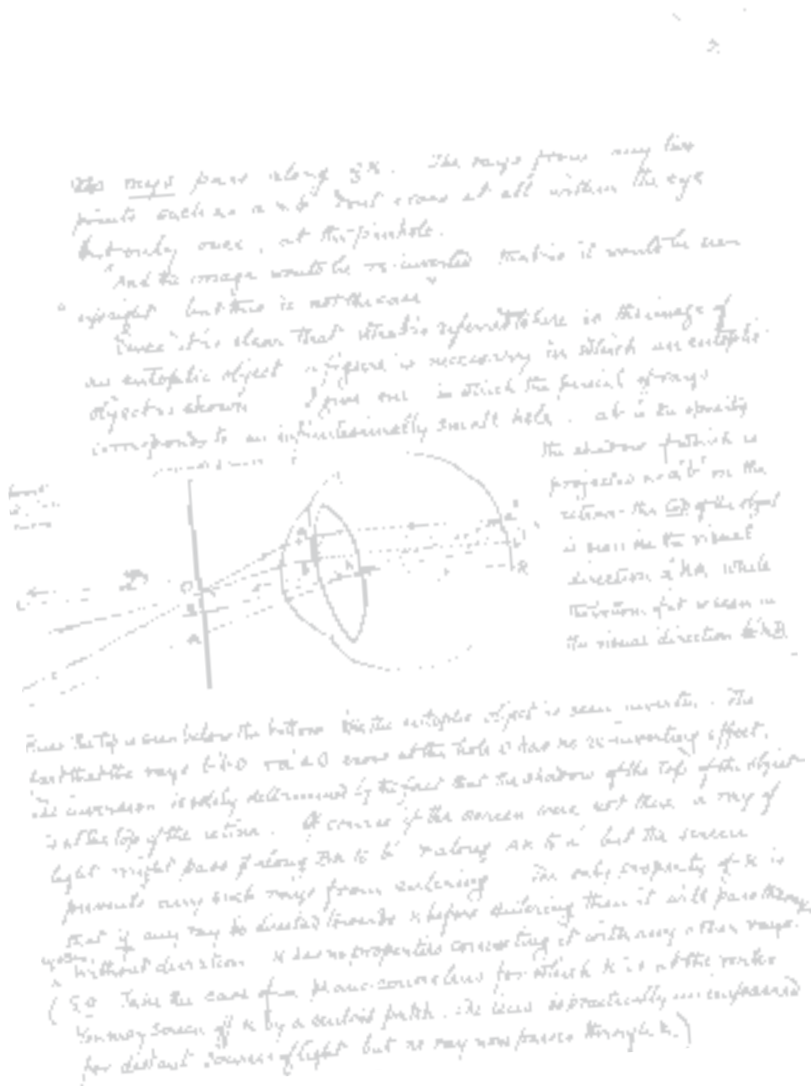 rays pass along
The rays from any two
points such as a & b don't cross at all within the eye
but only once, at the pinhole.
"And the image would be re-inverted that is it would be seen
upright but this is not the case"
Since it is clear that what is referred to here is the image of
an entoptic object a figure is necessary in which an entoptic
object is shown I give one in which the pencil of rays
corresponds to an infinitesimally small hole. ab is the opacity
the shadow of which is
projected a'b' on the
retina the top of the object
is seen in the visual
direction a'kA while
the bottom of it is seen in
the visual direction b'kB
O
B
A
a
b
k
a'
b'
R
Thus the top is seen below the bottom the entoptic object is seen inverted. The
fact that the rays b'bO and a'aO cross at the hole O has no re-inverting effect.
The inversion is solely determined by the fact that the shadow of the top of the object
is at the top of the retina. Of course if the screen were not there a ray of
light might pass along Bk to b' along Ak to a' but the screen
prevents any such rays from entering The only property of k is
that if any ray be directed towards k before entering then it will pass through
without deviation k has no properties connecting it with any other rays.
Take the case of a plano-convex lens for which k is at the vertex
You may screen off k by a central patch. The lens is practically unimpaired
for distant sources of light but no ray now passes through k.)